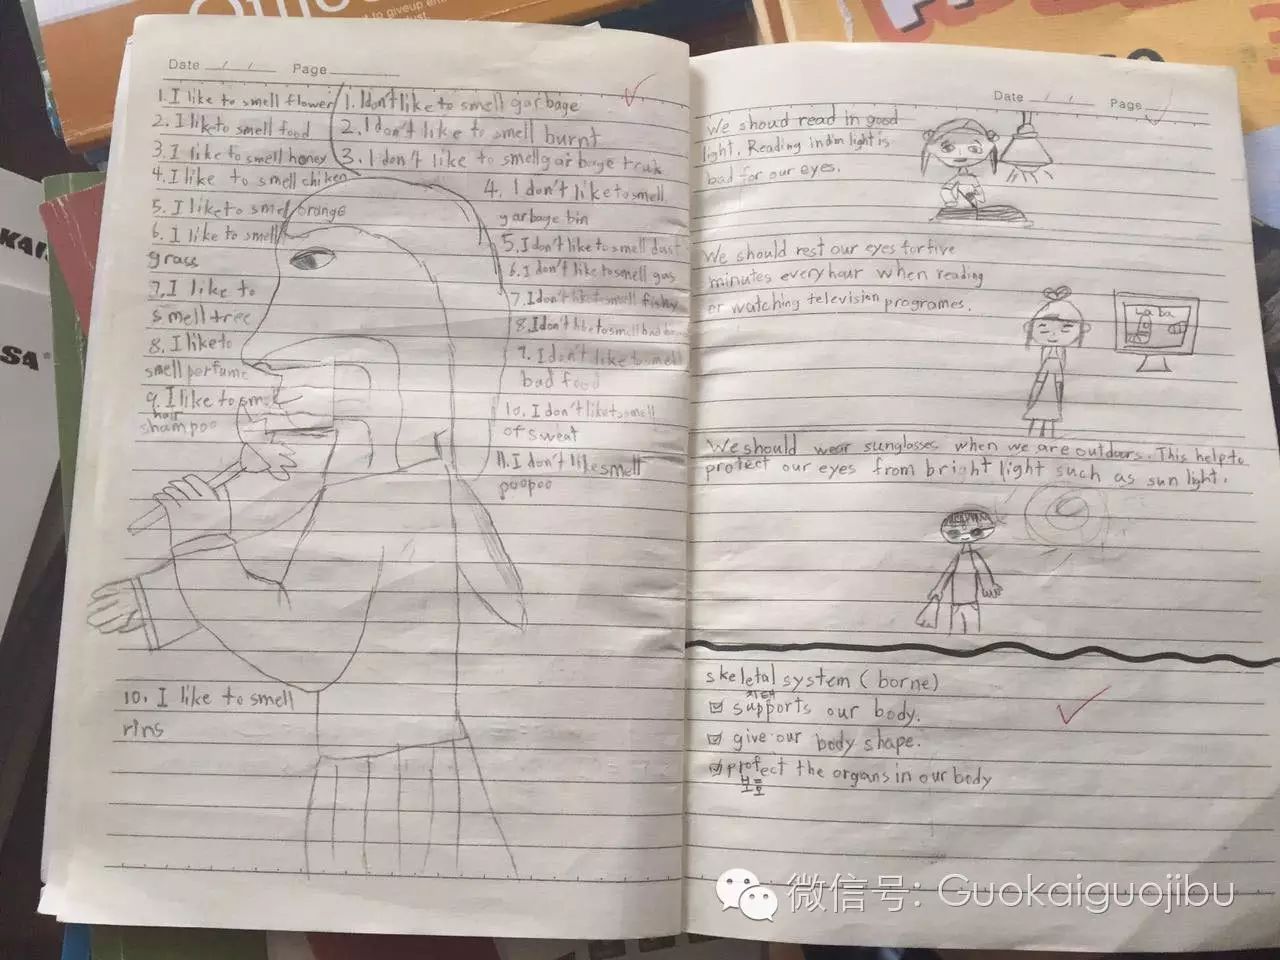 Date / / Page
1. I like to smell flower
2. I like to smell food
3. I like to smell honey
4. I like to smell chiken
5. I like to smell orange
6. I like to smell
grass
7. I like to
smell tree
8. I like to
smell perfume
9. I like to
hair
shampoo
10. I like to smell
rins
1. I don't like to smell garbage
2. I don't like to smell burnt
3. I don't like to smell garbage truk
4. I don't like to smell
garbage bin
5. I don't like to smell dust
6. I don't like to smell gas
7. I don't like to smell fishy
8. I don't like to smell bad
9. I don't like to smell
bad food
10. I don't like to smell
of sweat
11. I don't like smell
poopoo
Date / / Page
We shoud read in good
light. Reading in dim light is
bad for our eyes.
We should rest our eyes for five
minutes every hour when reading
or watching television programes.
La La
We should wear sunglasses when we are outdoors. This help to
protect our eyes from bright light such as sun light.
skeletal system (borne)
지탱
supports our body.
give our body shape.
protect the organs in our body
보호
微信号: Guokaiguojibu